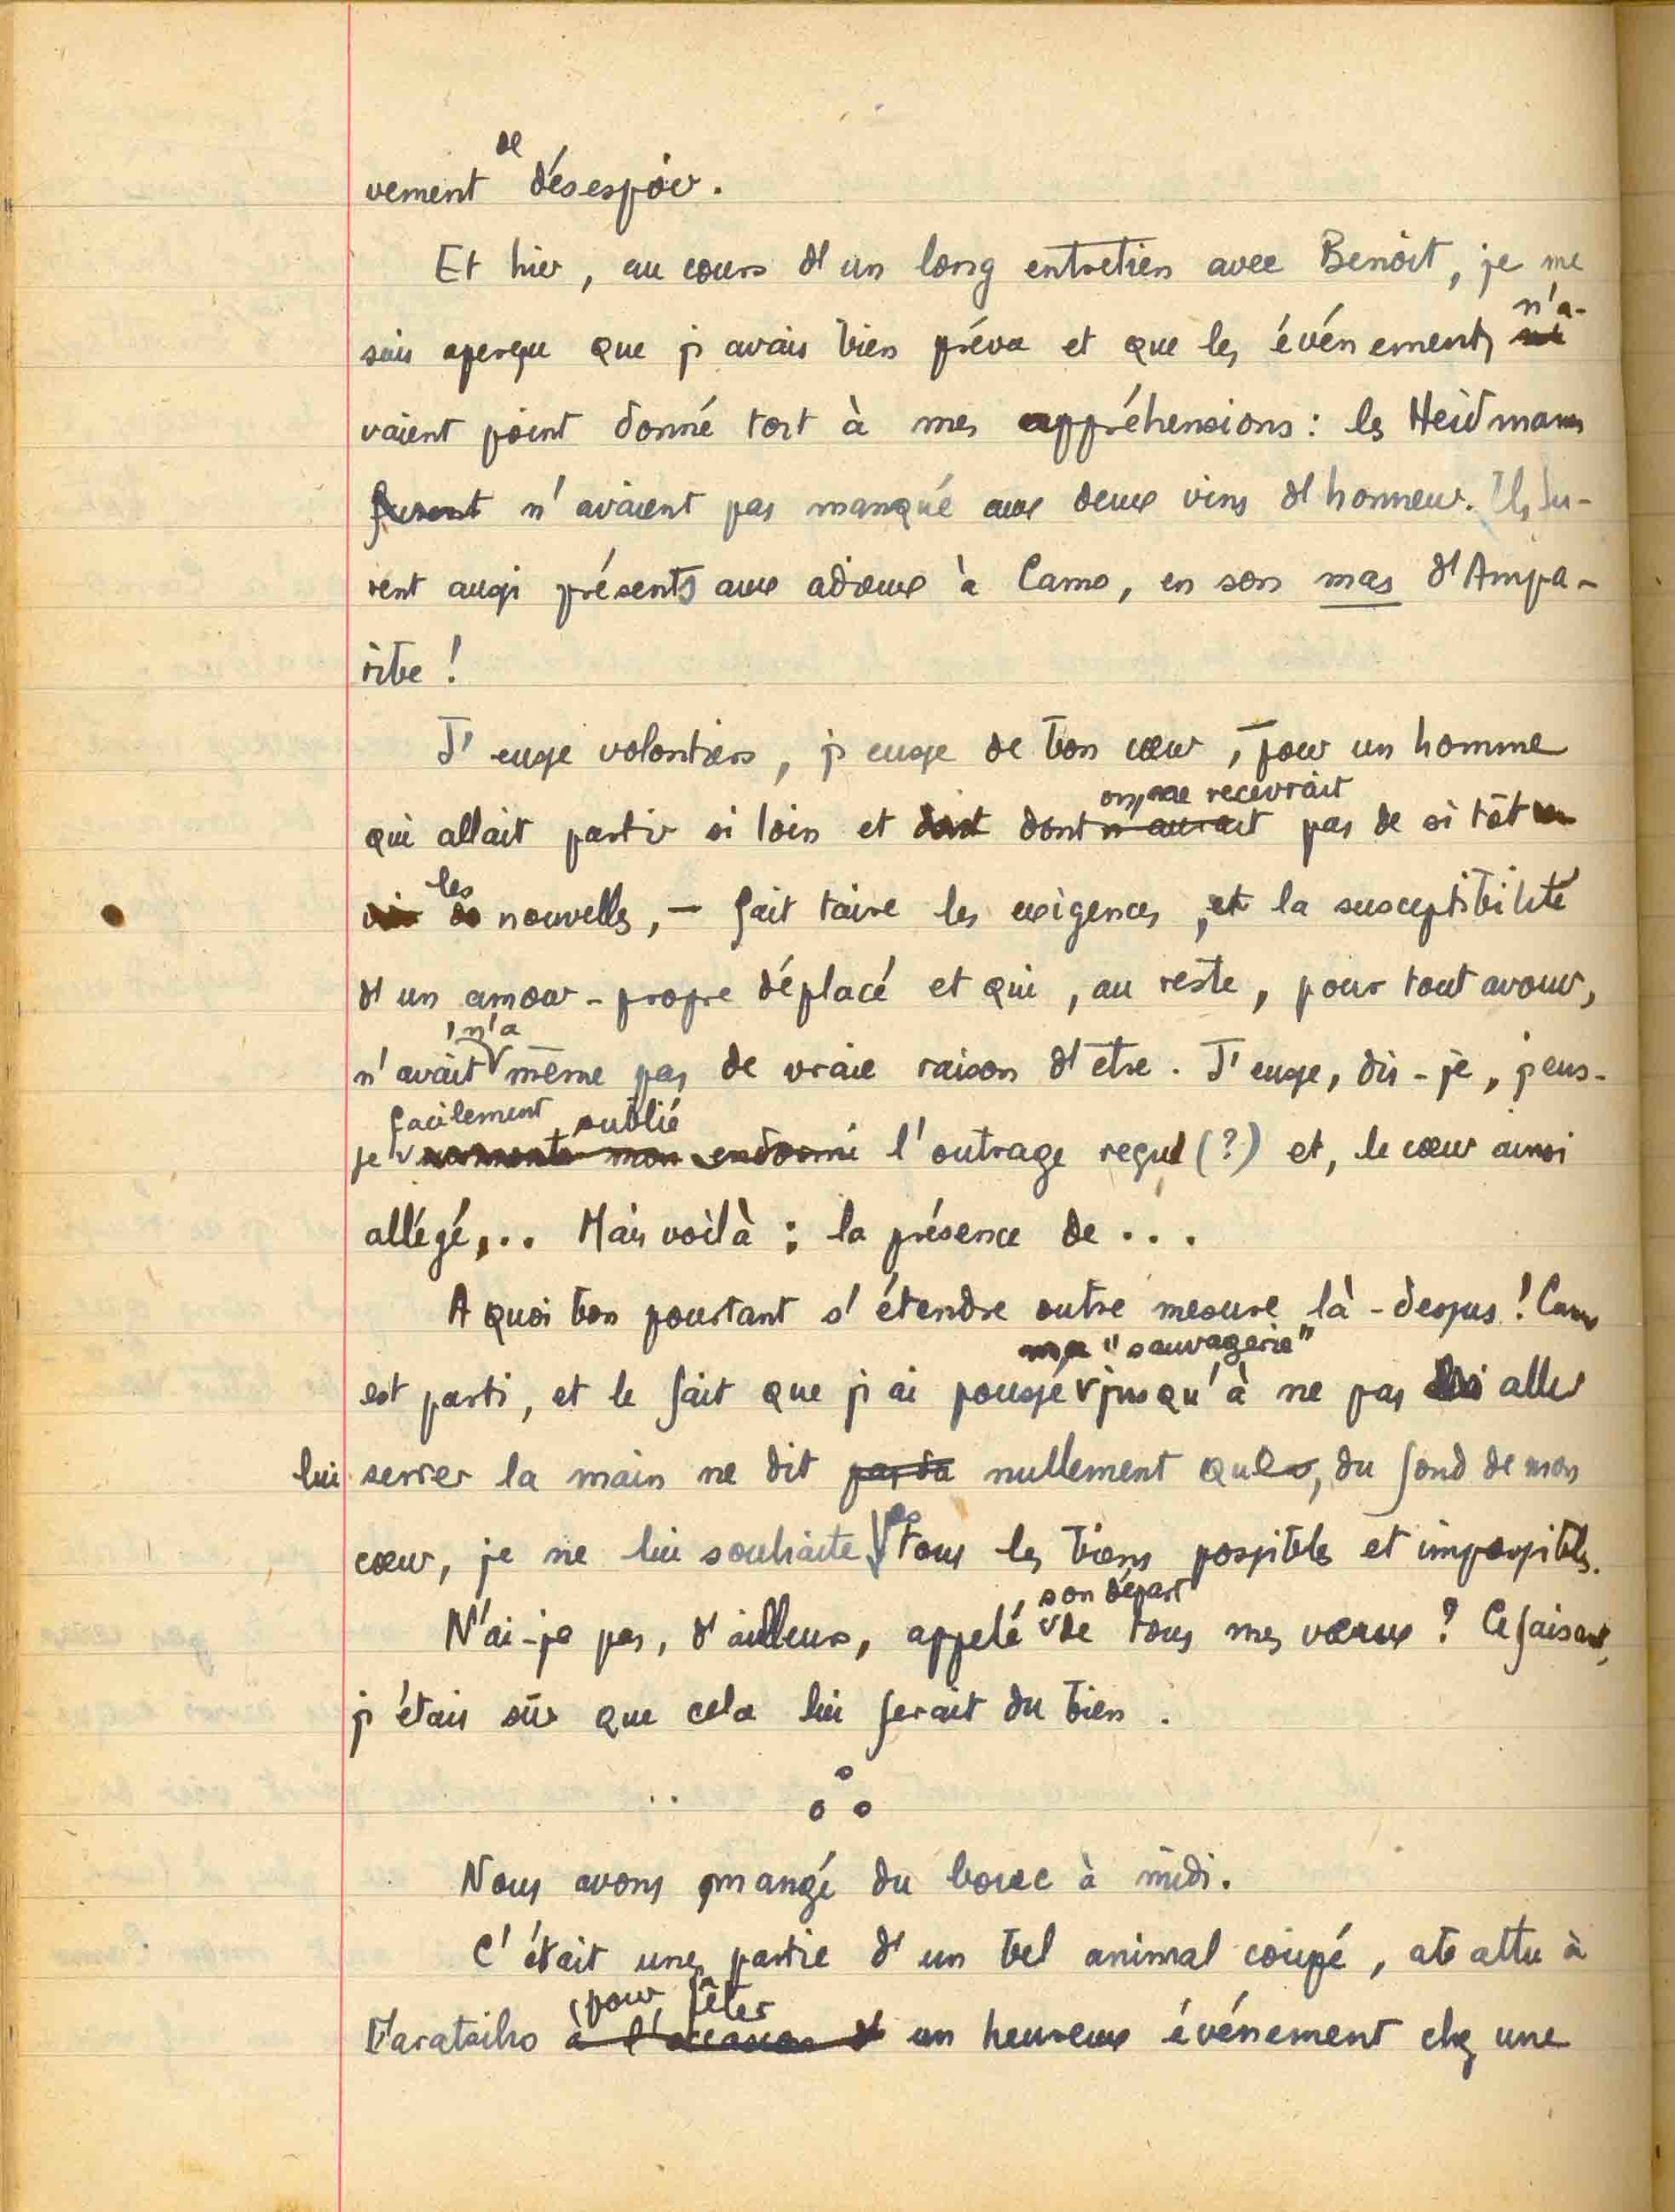 vement de désespoir.
Et hier, au cours d'un long entretien avec Benoit, je me
suis aperçu que j'avais bien prévu et que les événements n'a-
vaient point donné tort à mes appréhensions : les Heidmann
furent n'avaient pas manqué aux deux vins d'honneur. Ils fu-
rent aussi présents aux adieux à Camo, en son mas d'Ampa-
ribe !
J'eusse volontiers, j'eusse de bon cœur, – pour un homme
qui allait partir si loin et dont dont on ne recevrait n'aurait pas de si tôt
les de nouvelles, – fait taire les exigences, et la susceptibilité
d'un amour-propre déplacé et qui, au reste, pour tout avouer,
n'avait, n'a même pas de vraie raison d'être. J'eusse, dis-je, j'eus-
se facilement oublié mon endormi l'outrage reçu (?) et, le cœur ainsi
allégé,... Mais voilà : la présence de ...
A quoi bon pourtant s'étendre outre mesure là-dessus ! Camo
est parti, et le fait que j'ai poussé ma "sauvagerie" jusqu'à ne pas aller
lui serrer la main ne dit nullement que, du fond de mon
cœur, je ne lui souhaite pas tous les biens possibles et impossibles.
N'ai-je pas, d'ailleurs, appelé son départ de tous mes vœux ? Ce faisant,
j'étais sûr que cela lui ferait du bien.
Nous avons mangé du bouc à midi.
C'était une partie d'un bel animal coupé, abattu à
Faratsiho pour fêter à l'occasion d' un heureux événement chez une